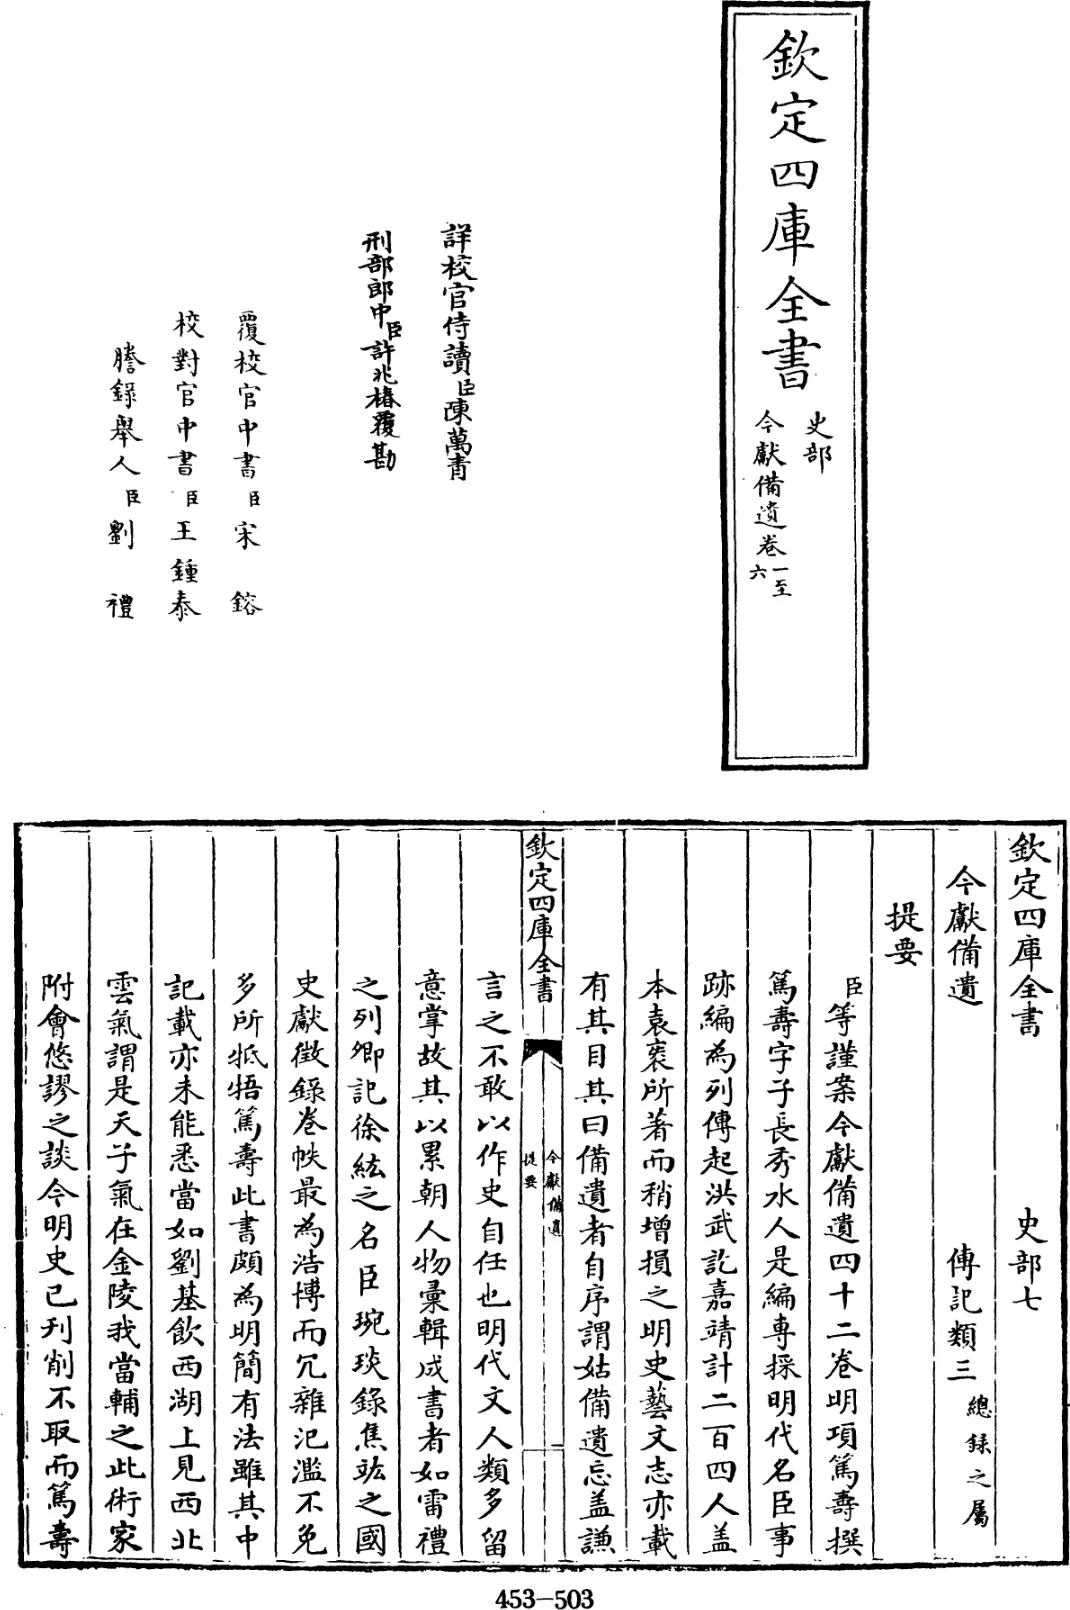 欽定四庫全書
史部
今獻備遺卷一至六
詳校官侍讀臣陳萬青
刑部郎中臣許兆椿覆勘
覆校官中書臣宋鎔
校對官中書臣王鍾泰
謄錄舉人臣劉禮
欽定四庫全書 史部七
今獻備遺 傳記類三總錄之屬
提要
臣等謹案今獻備遺四十二卷明項篤壽撰
篤壽字子長秀水人是編專採明代名臣事
跡編為列傳起洪武訖嘉靖計二百四人盖
本袁袠所著而稍增損之明史藝文志亦載
有其目其曰備遺者自序謂姑備遺忘盖謙
欽定四庫全書
今獻備遺
提要
一
言之不敢以作史自任也明代文人類多留
意掌故其以累朝人物彙輯成書者如雷禮
之列卿記徐紘之名臣琬琰錄焦竑之國
史獻徵錄卷帙最為浩博而冗雜氾濫不免
多所牴牾篤壽此書頗為明簡有法雖其中
記載亦未能悉當如劉基飲西湖上見西北
雲氣謂是天子氣在金陵我當輔之此術家
附會悠謬之談今明史已刋削不取而篤壽
453-503